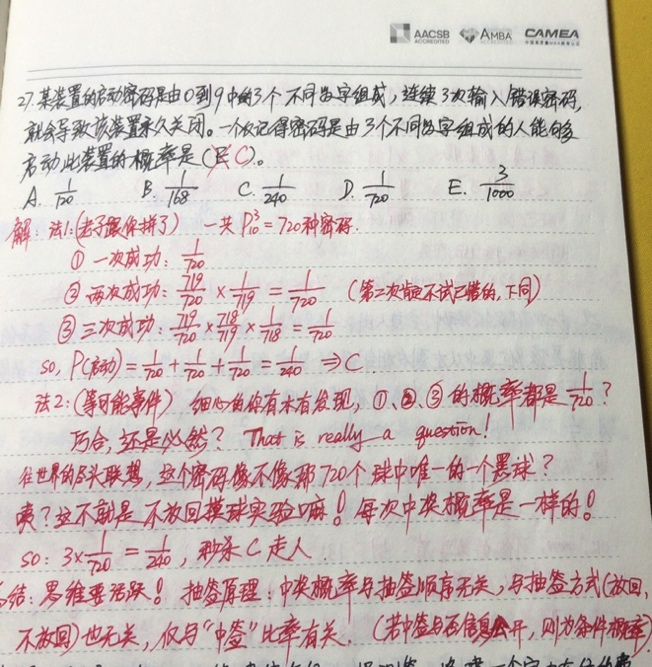 AACSB ACCREDITED AMBA ACCREDITED CAMEA
27. 某装置的启动密码是由0到9中的3个不同数字组成, 连续3次输入错误密码,
就会导致该装置永久关闭。一个仅记得密码是由3个不同数字组成的人能够
启动此装置的概率是( C )。
A. 1/120 B. 1/168 C. 1/240 D. 1/720 E. 3/1000
解: 法1:(老子跟你拼了) 一共 P³₁₀ = 720种密码.
① 一次成功: 1/720
② 两次成功: 719/720 × 1/719 = 1/720 (第二次肯定不试已错的,下同)
③ 三次成功: 719/720 × 718/719 × 1/718 = 1/720
so, P(启动) = 1/720 + 1/720 + 1/720 = 1/240 ⇒ C.
法2:(等可能事件) 细心的你有木有发现, ①、②、③ 的概率都是 1/720 ?
巧合, 还是必然? That is really a question!
往世界的尽头联想, 这个密码像不像那720个球中唯一的一个黑球?
咦?这不就是不放回摸球实验嘛! 每次中奖概率是一样的!
so: 3×1/720 = 1/240, 秒杀C走人.
结: 思维要活跃! 抽签原理: 中奖概率与抽签顺序无关, 与抽签方式(放回,
不放回)也无关, 仅与“中签”比率有关. (若中签与否信息公开, 则为条件概率)